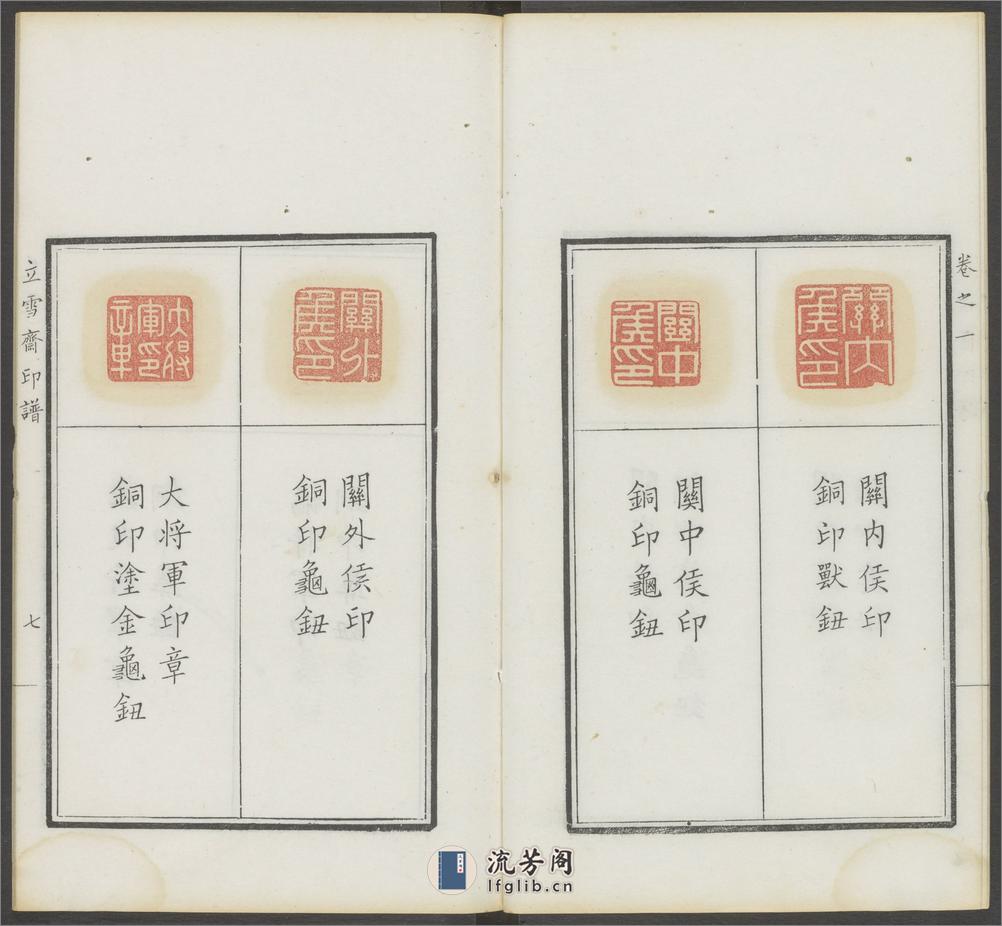 卷之一
關内侯印
關内侯印
銅印獸鈕
關中侯印
關中侯印
銅印龜鈕
關外侯印
關外侯印
銅印龜鈕
大將軍印章
大将軍印章
銅印塗金龜鈕
立雪齋印譜
七
流芳阁
lfglib.cn